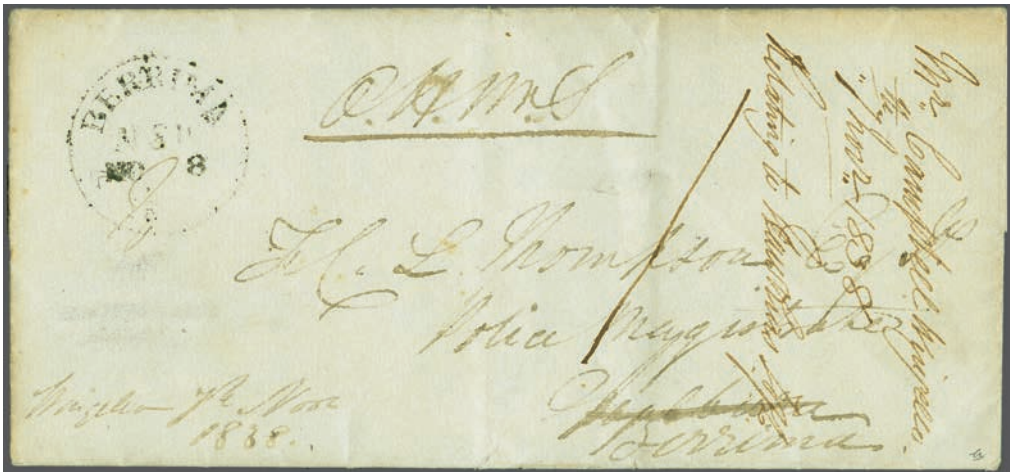 BERRIMA
NO 8
O.H.M.S
F. C. L. Thompson Esqr
Police Magistrate
Berrima
Wingello 7th Novr
1838.
Mr Campbell Wingello
7th Novr 1838
Relating to